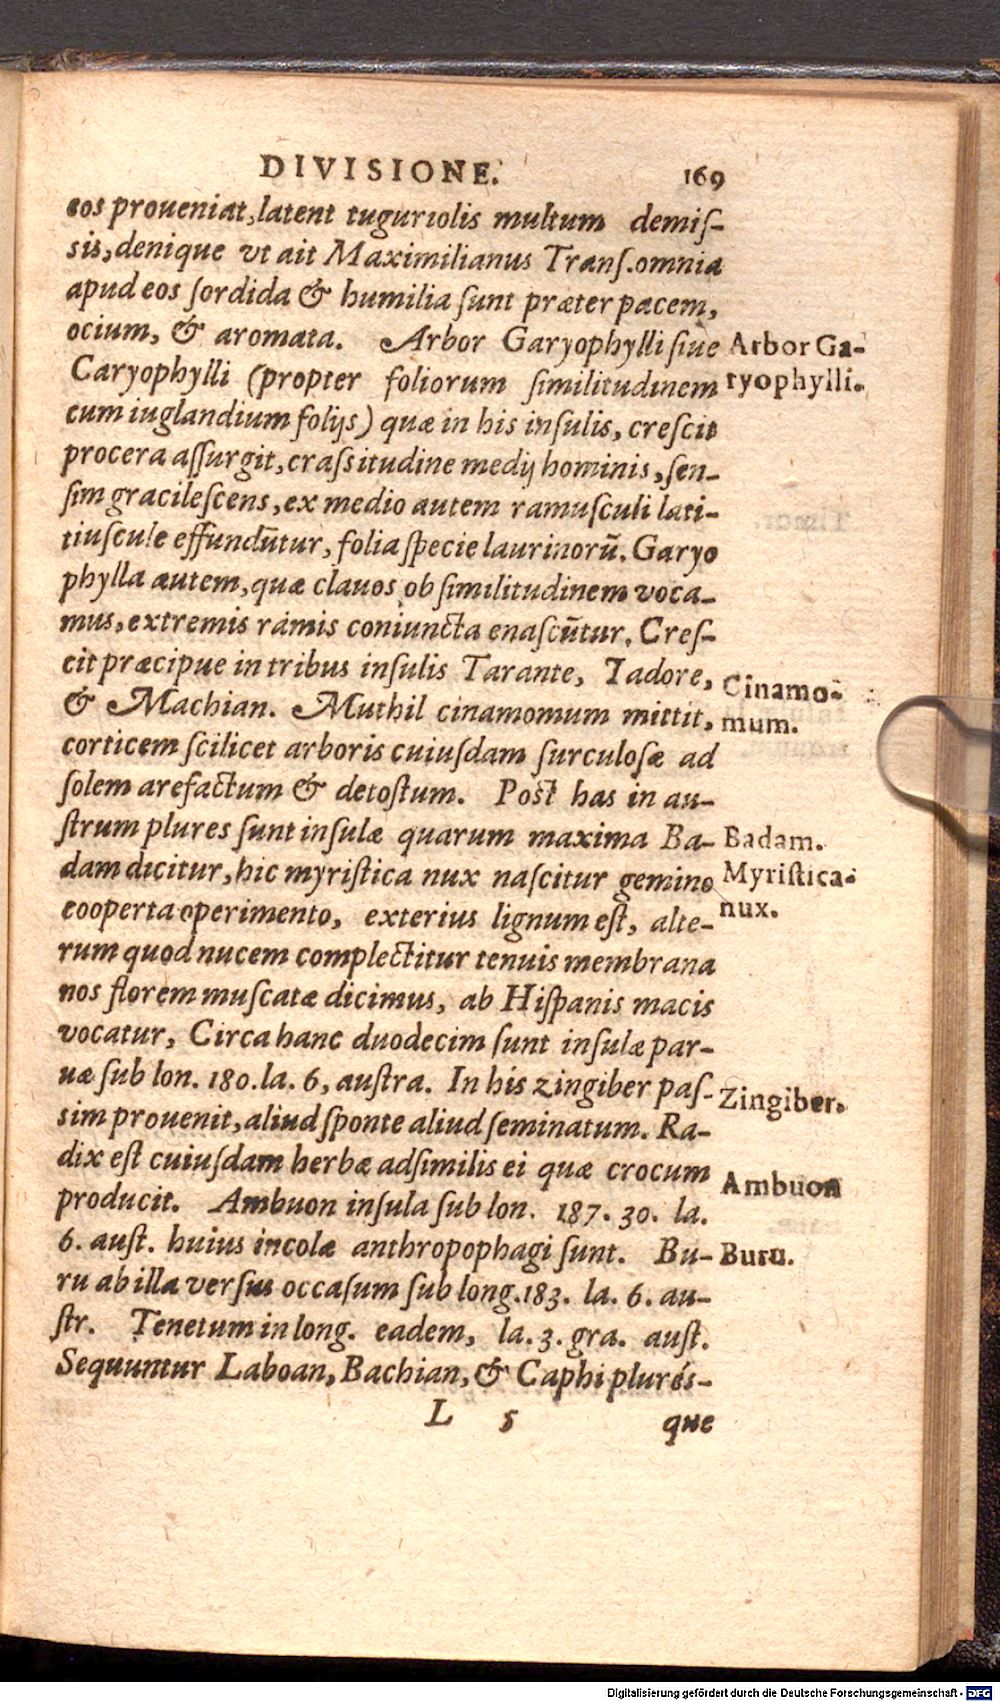 DIVISIONE. 169
eos proueniat, latent tuguriolis multum demiſ-
sis, denique vt ait Maximilianus Tranſ. omnia
apud eos ſordida & humilia ſunt præter pacem,
ocium, & aromata. Arbor Garyophylli ſiue
Arbor Ga-
Caryophylli (propter foliorum ſimilitudinem
ryophylli.
cum iuglandium folijs) quæ in his inſulis, creſcit
procera aſſurgit, craſsitudine medij hominis, ſen-
ſim gracileſcens, ex medio autem ramuſculi lati-
tiuſcule effundūtur, folia ſpecie laurinorū. Garyo
phylla autem, quæ clauos ob ſimilitudinem voca-
mus, extremis ramis coniuncta enaſcūtur. Creſ-
cit præcipue in tribus inſulis Tarante, Tadore,
& Machian. Muthil cinamomum mittit,
Cinamo-
mum.
corticem ſcilicet arboris cuiuſdam ſurculoſæ ad
ſolem arefactum & detoſtum. Poſt has in au-
ſtrum plures ſunt inſulæ quarum maxima Ba-
Badam.
dam dicitur, hic myriſtica nux naſcitur gemino
Myriſtica-
nux.
cooperta operimento, exterius lignum eſt, alte-
rum quod nucem complectitur tenuis membrana
nos florem muſcatæ dicimus, ab Hiſpanis macis
vocatur, Circa hanc duodecim ſunt inſulæ par-
uæ ſub lon. 180. la. 6, auſtra. In his zingiber paſ-
Zingiber.
sim prouenit, aliud ſponte aliud ſeminatum. Ra-
dix eſt cuiuſdam herbæ adſimilis ei quæ crocum
producit. Ambuon inſula ſub lon. 187. 30. la.
Ambuon
6. auſt. huius incolæ anthropophagi ſunt. Bu-
Buru.
ru ab illa verſus occaſum ſub long. 183. la. 6. au-
ſtr. Tenetum in long. eadem, la. 3. gra. auſt.
Sequuntur Laboan, Bachian, & Caphi plures-
L 5 que
Digitalisierung gefördert durch die Deutsche Forschungsgemeinschaft - DFG